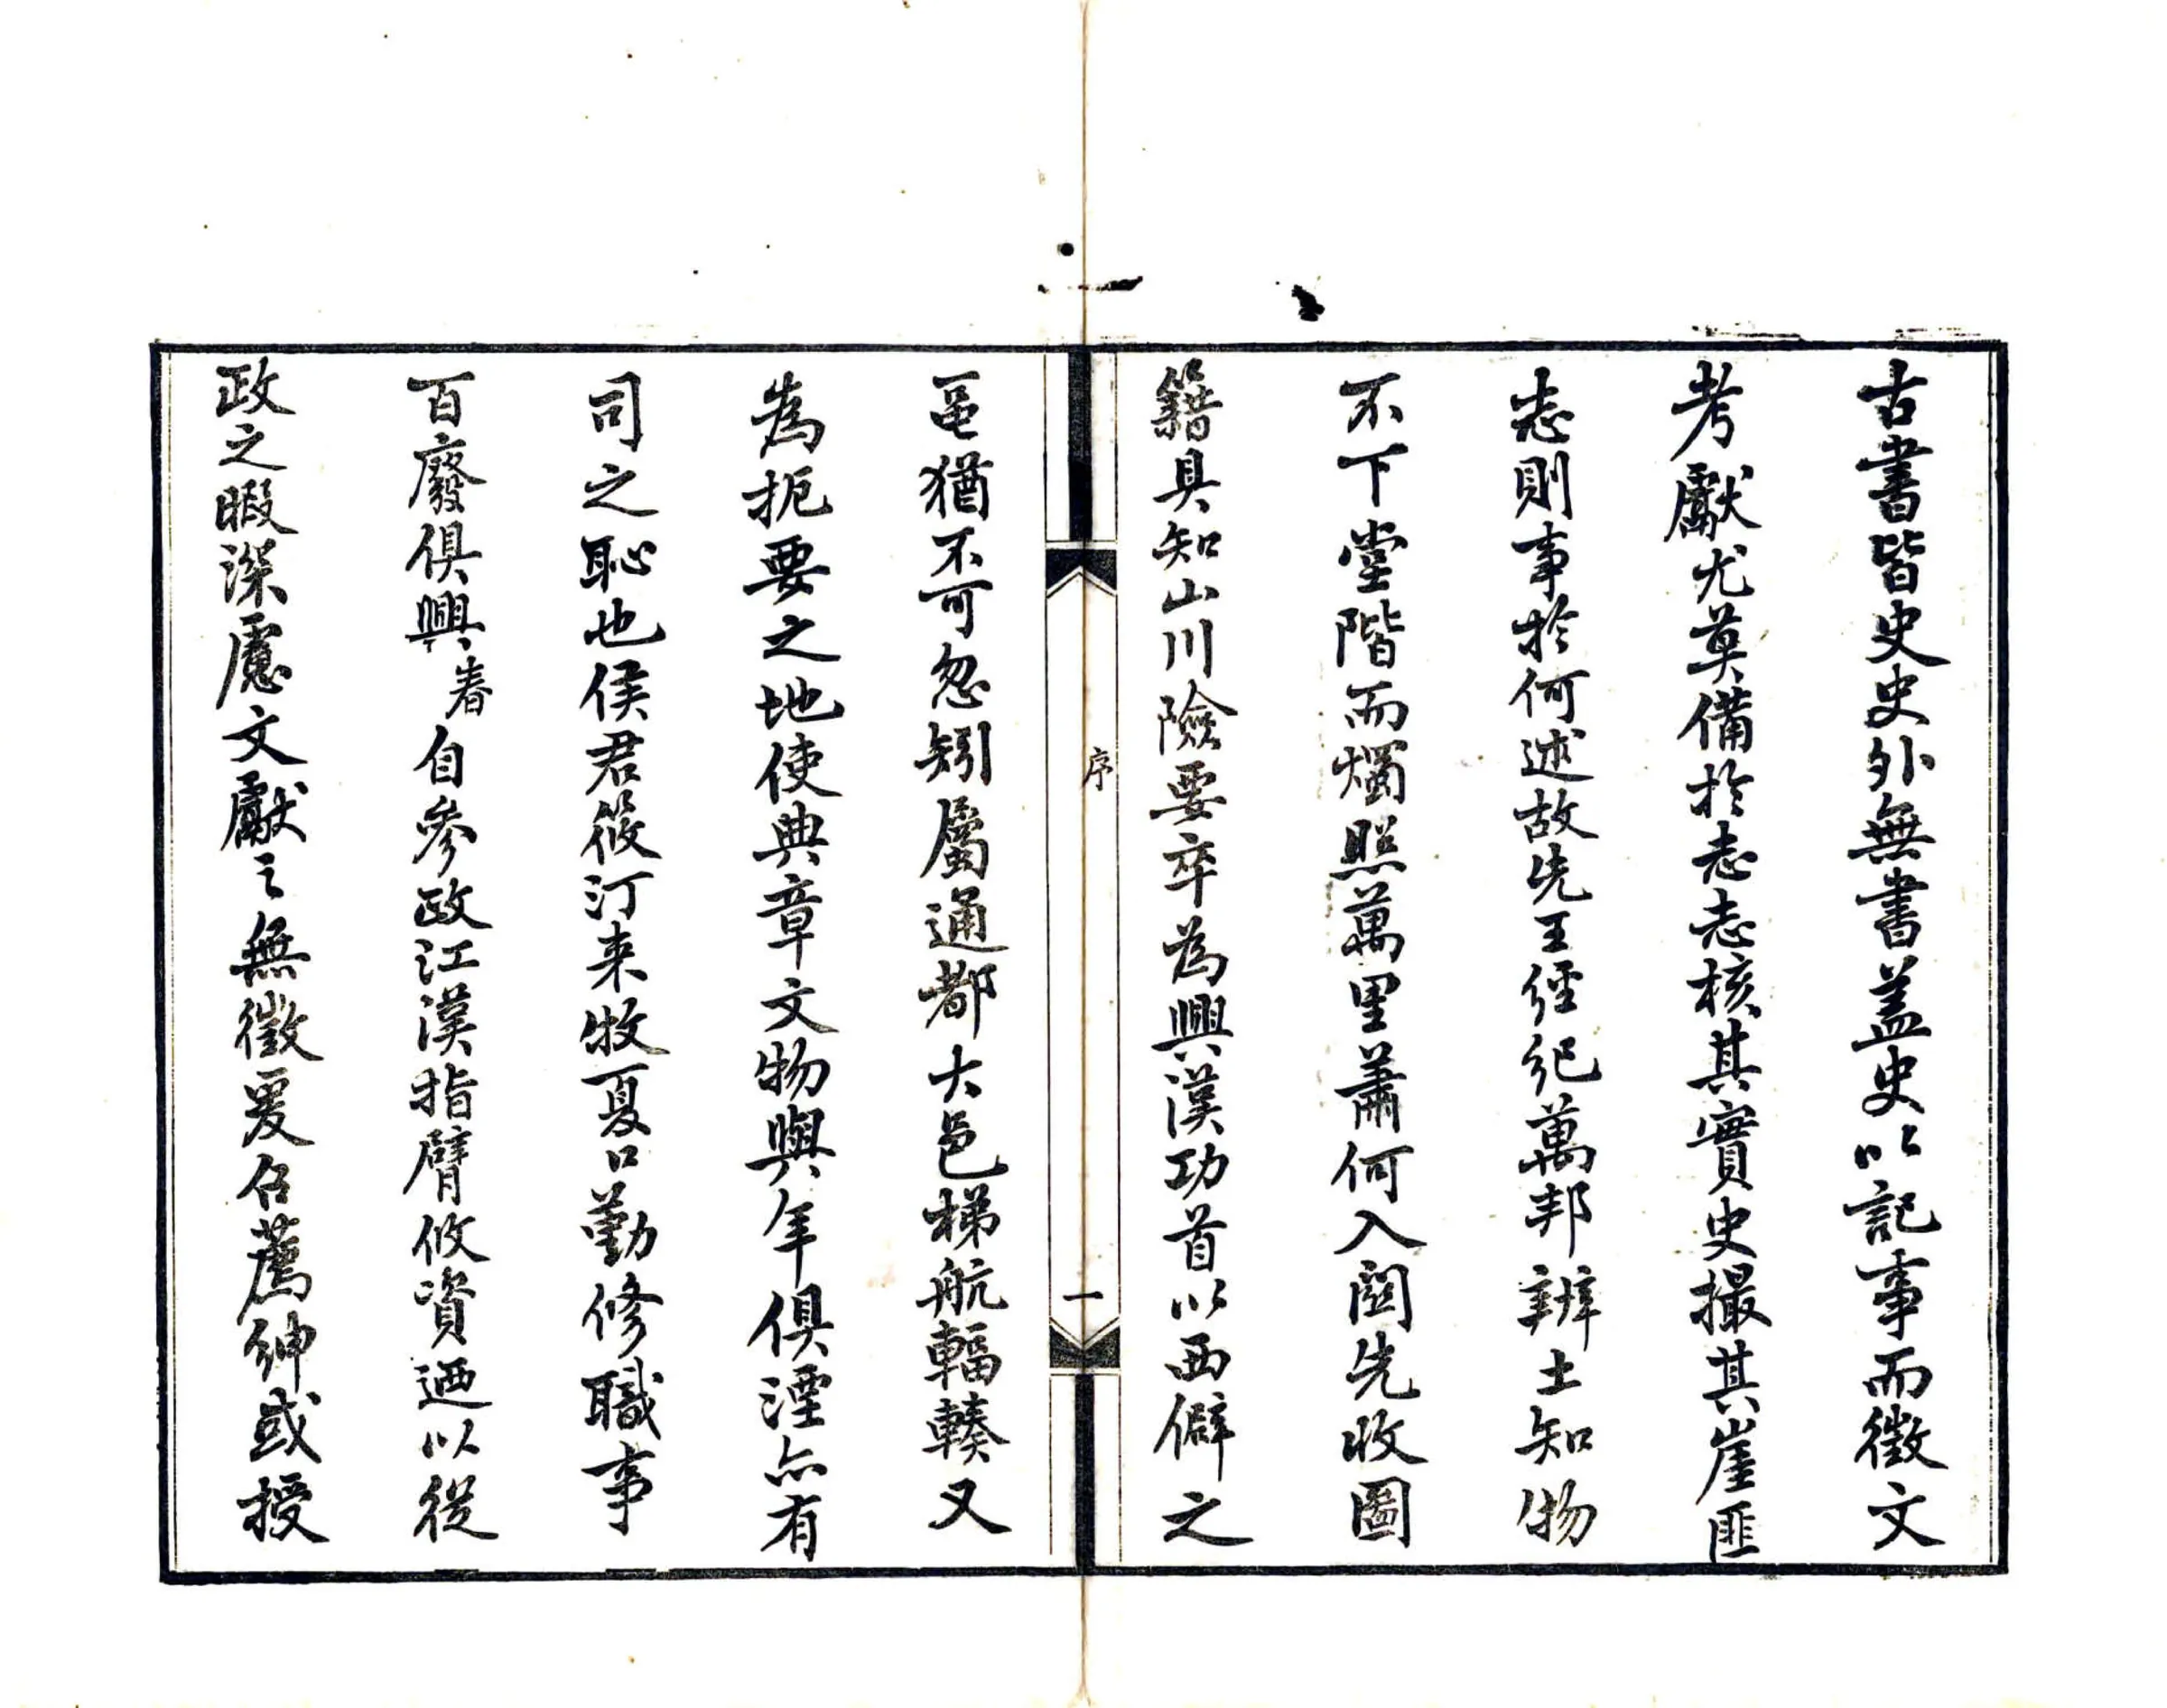 古書皆史史外無書蓋史以記事而徵文
考獻尤莫備於志志核其實史撮其崖匪
志則事於何述故先王經紀萬邦辨土知物
不下堂階而燭照萬里蕭何入關先收圖
籍具知山川險要卒為興漢功首以西僻之
序
一
邑猶不可忽矧屬通都大邑梯航輻輳又
為扼要之地使典章文物與年俱湮亦有
司之恥也侯君筱汀来牧夏口勤修職事
百廢俱興春自參政江漢指臂攸資迺以從
政之暇深慮文獻之無徵爰召薦紳或授